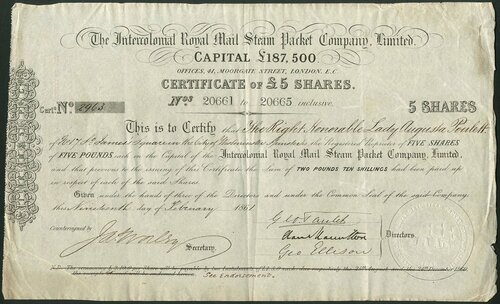 The Intercolonial Royal Mail Steam Packet Company, Limited.
CAPITAL £187,500.
OFFICES, 41, MOORGATE STREET, LONDON, E.C.
CERTIFICATE OF £5 SHARES.
Nos 20661 to 20665 inclusive.
5 SHARES
Certe. No. 2963
This is to Certify that The Right Honorable Lady Augusta Poulett
of No 17 St James Square in the City of Westminster Spinster is the Registered Proprietor of FIVE SHARES
of FIVE POUNDS each in the Capital of the Intercolonial Royal Mail Steam Packet Company, Limited,
and that previous to the issuing of this Certificate the Sum of TWO POUNDS TEN SHILLINGS had been paid up
in respect of each of the said Shares.
Given under the hands of three of the Directors and under the Common Seal of the said Company
this Nineteenth day of February 1861
Countersigned by
Secretary.
Geo Ellison
Directors.
See Endorsement.